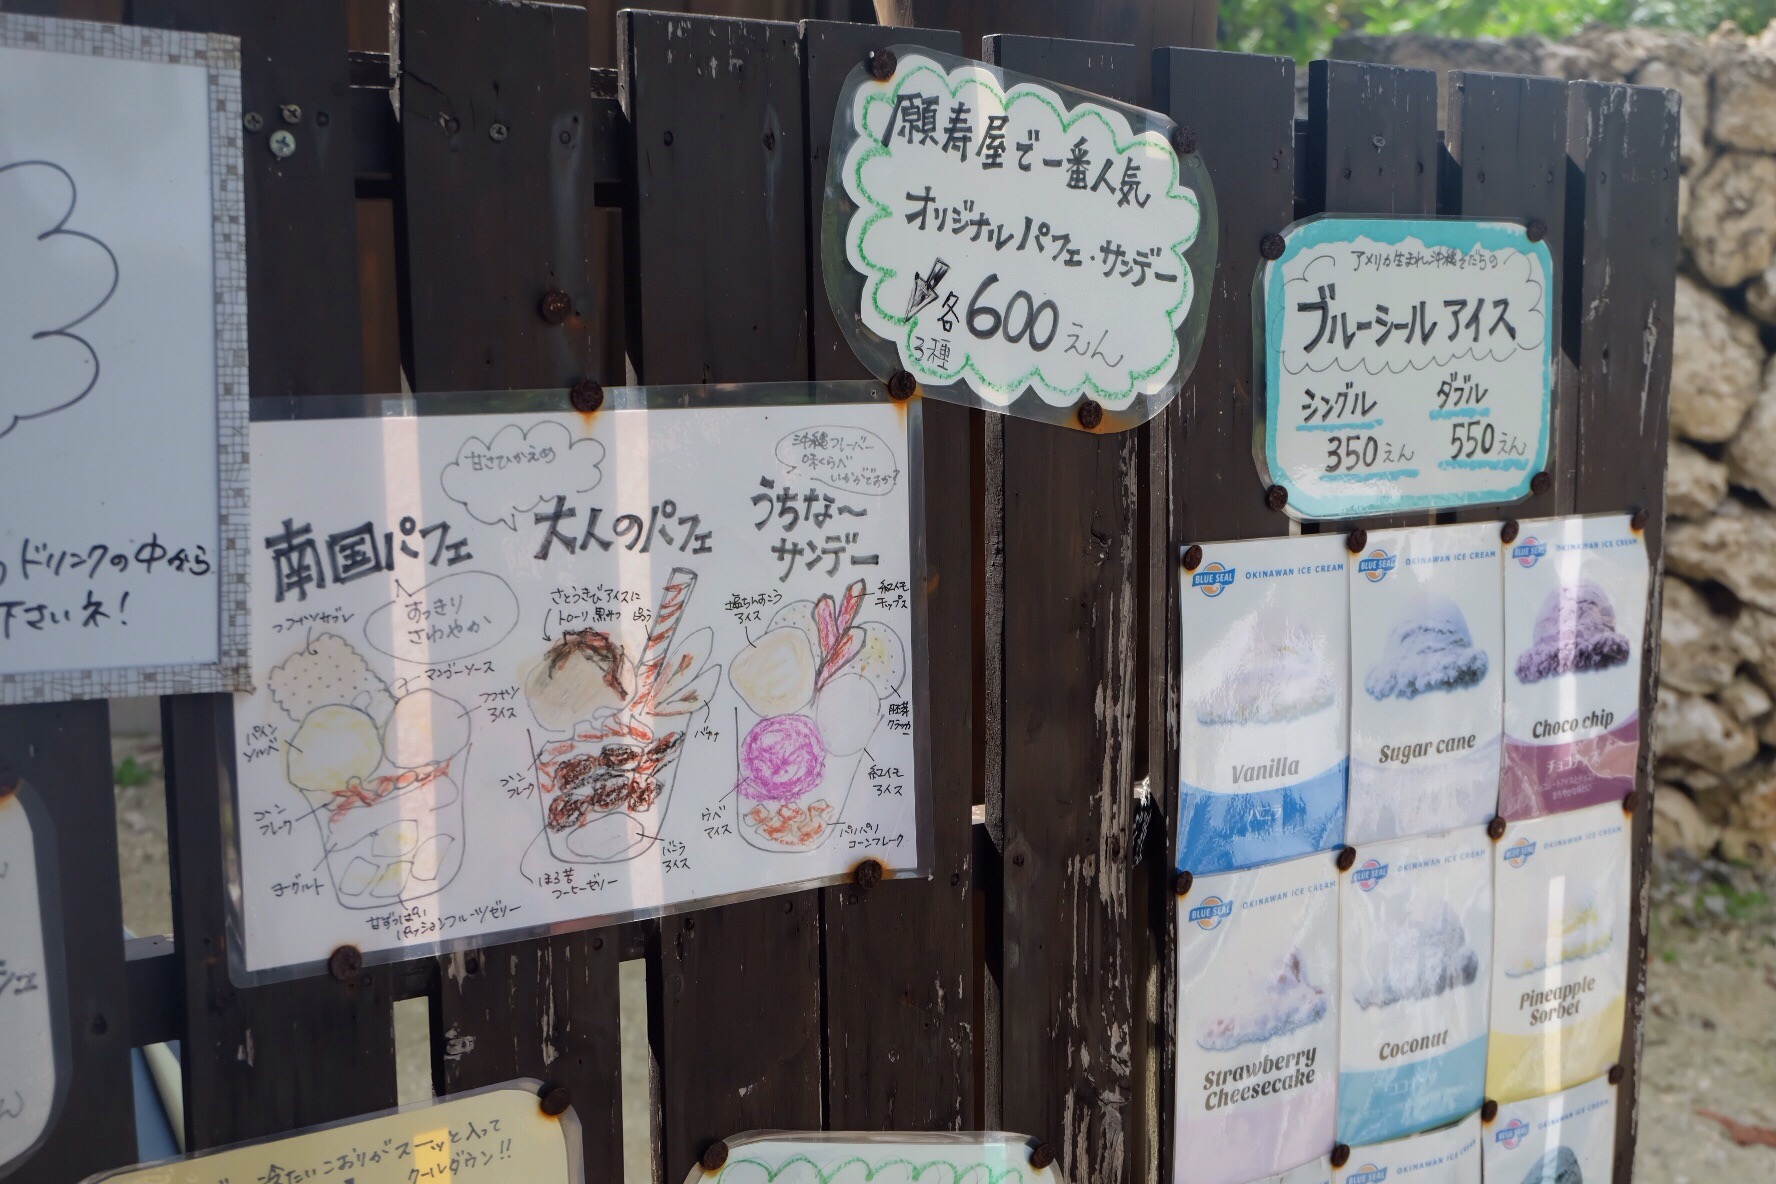 ドリンクの中から
下さいネ!
願寿屋で一番人気
オリジナルパフェ・サンデー
各600えん
3種
アメリカ生まれ沖縄そだちの
ブルーシールアイス
シングル
350えん
ダブル
550えん
甘さひかえめ
沖縄フレーバー
味くらべ
いかがですか?
南国パフェ
すっきり
さわやか
マンゴーソース
ココナツ
アイス
パイン
ソルベ
コーン
フレーク
ヨーグルト
甘ずっぱい
パッションフルーツゼリー
大人のパフェ
さとうきびアイスに
トローリ黒みつ
バナナ
コーン
フレーク
バニラ
アイス
ほろ苦
コーヒーゼリー
うちな〜
サンデー
塩ちんすこう
アイス
紅イモ
チップス
胚芽
クラッカー
紅イモ
アイス
ウベ
アイス
パリパリ
コーンフレーク
BLUE SEAL
OKINAWAN ICE CREAM
Vanilla
バニラ
BLUE SEAL
OKINAWAN ICE CREAM
Sugar cane
BLUE SEAL
OKINAWAN ICE CREAM
Choco chip
チョコチップ
BLUE SEAL
OKINAWAN ICE CREAM
Strawberry
Cheesecake
BLUE SEAL
OKINAWAN ICE CREAM
Coconut
ココナッツ
BLUE SEAL
OKINAWAN ICE CREAM
Pineapple
Sorbet
BLUE SEAL
OKINAWAN ICE CREAM
BLUE SEAL
OKINAWAN ICE CREAM
冷たいこおりがスーッと入って
クールダウン!!